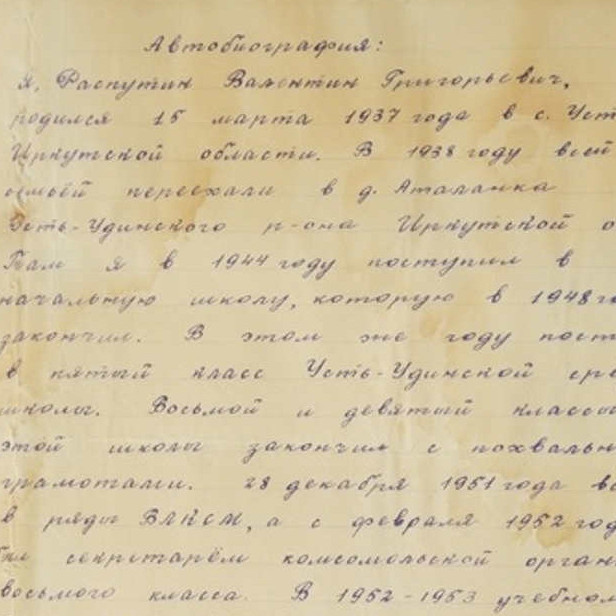 Автобиография:
Я, Распутин Валентин Григорьевич,
родился 15 марта 1937 года в с. Уст
Иркутской области. В 1938 году всей
семьёй переехали в д. Аталанка
Усть-Удинского р-она Иркутской о
Там я в 1944 году поступил в
начальную школу, которую в 1948 го
закончил. В этом же году пост
в пятый класс Усть-Удинской сре
школы. Восьмой и девятый классы
этой школы закончил с похвальн
грамотами. 28 декабря 1951 года вс
в ряды ВЛКСМ, а с февраля 1952 год
был секретарём комсомольской орган
восьмого класса. В 1952-1953 учебном